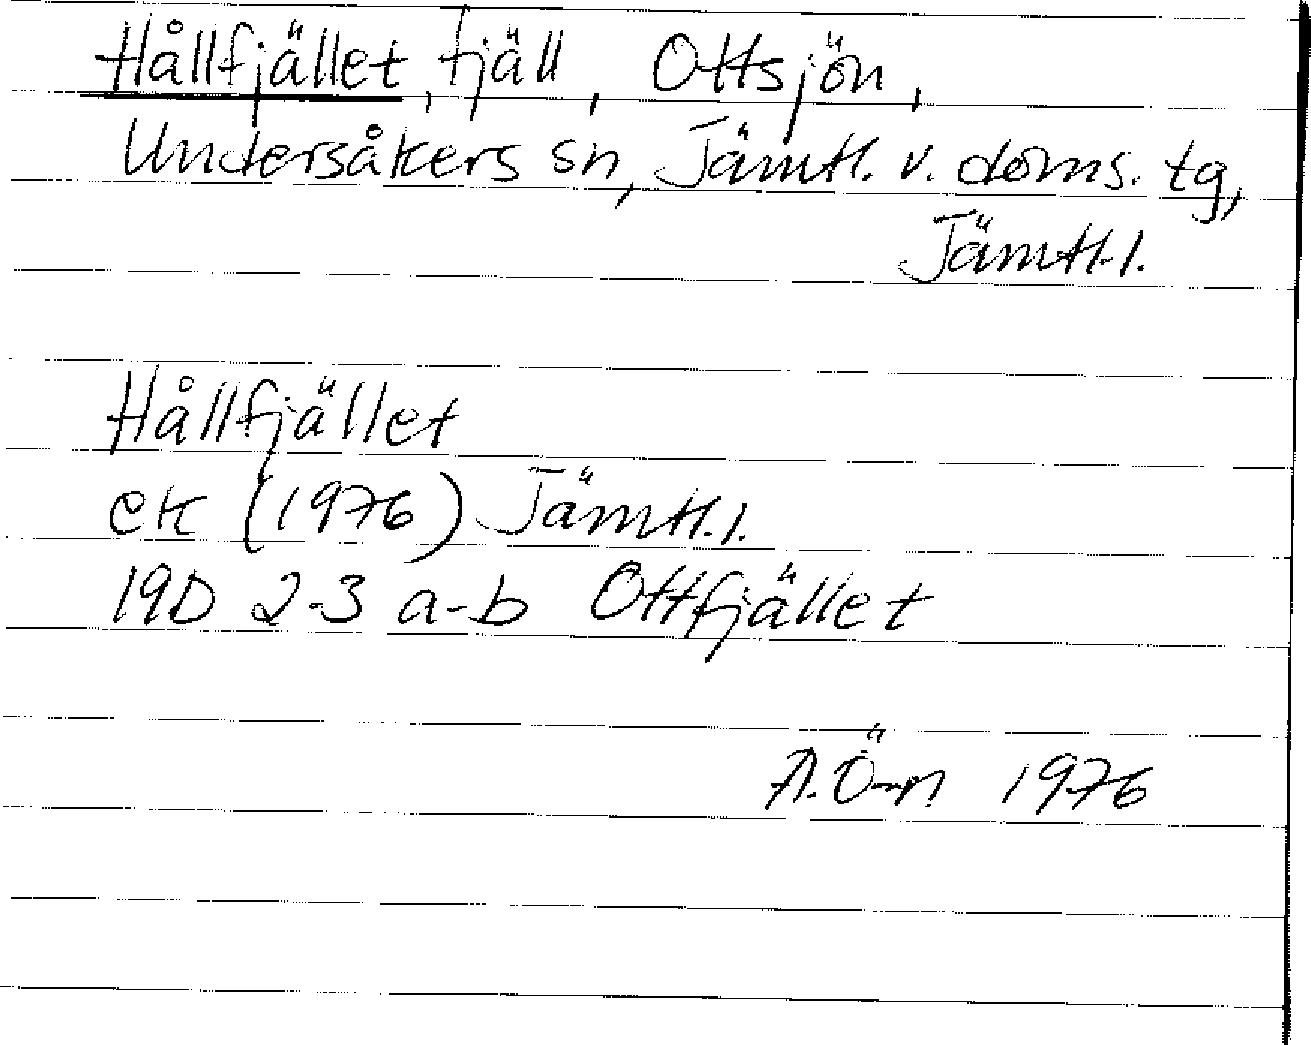 Hållfjället, fjäll, Ottsjön,
Undersåkers sn, Jämtl. v. doms. tg,
Jämtl.l.
Hållfjället
ek (1976) Jämtl.l.
19D 2-3 a-b Ottfjället
A.Ö-n 1976